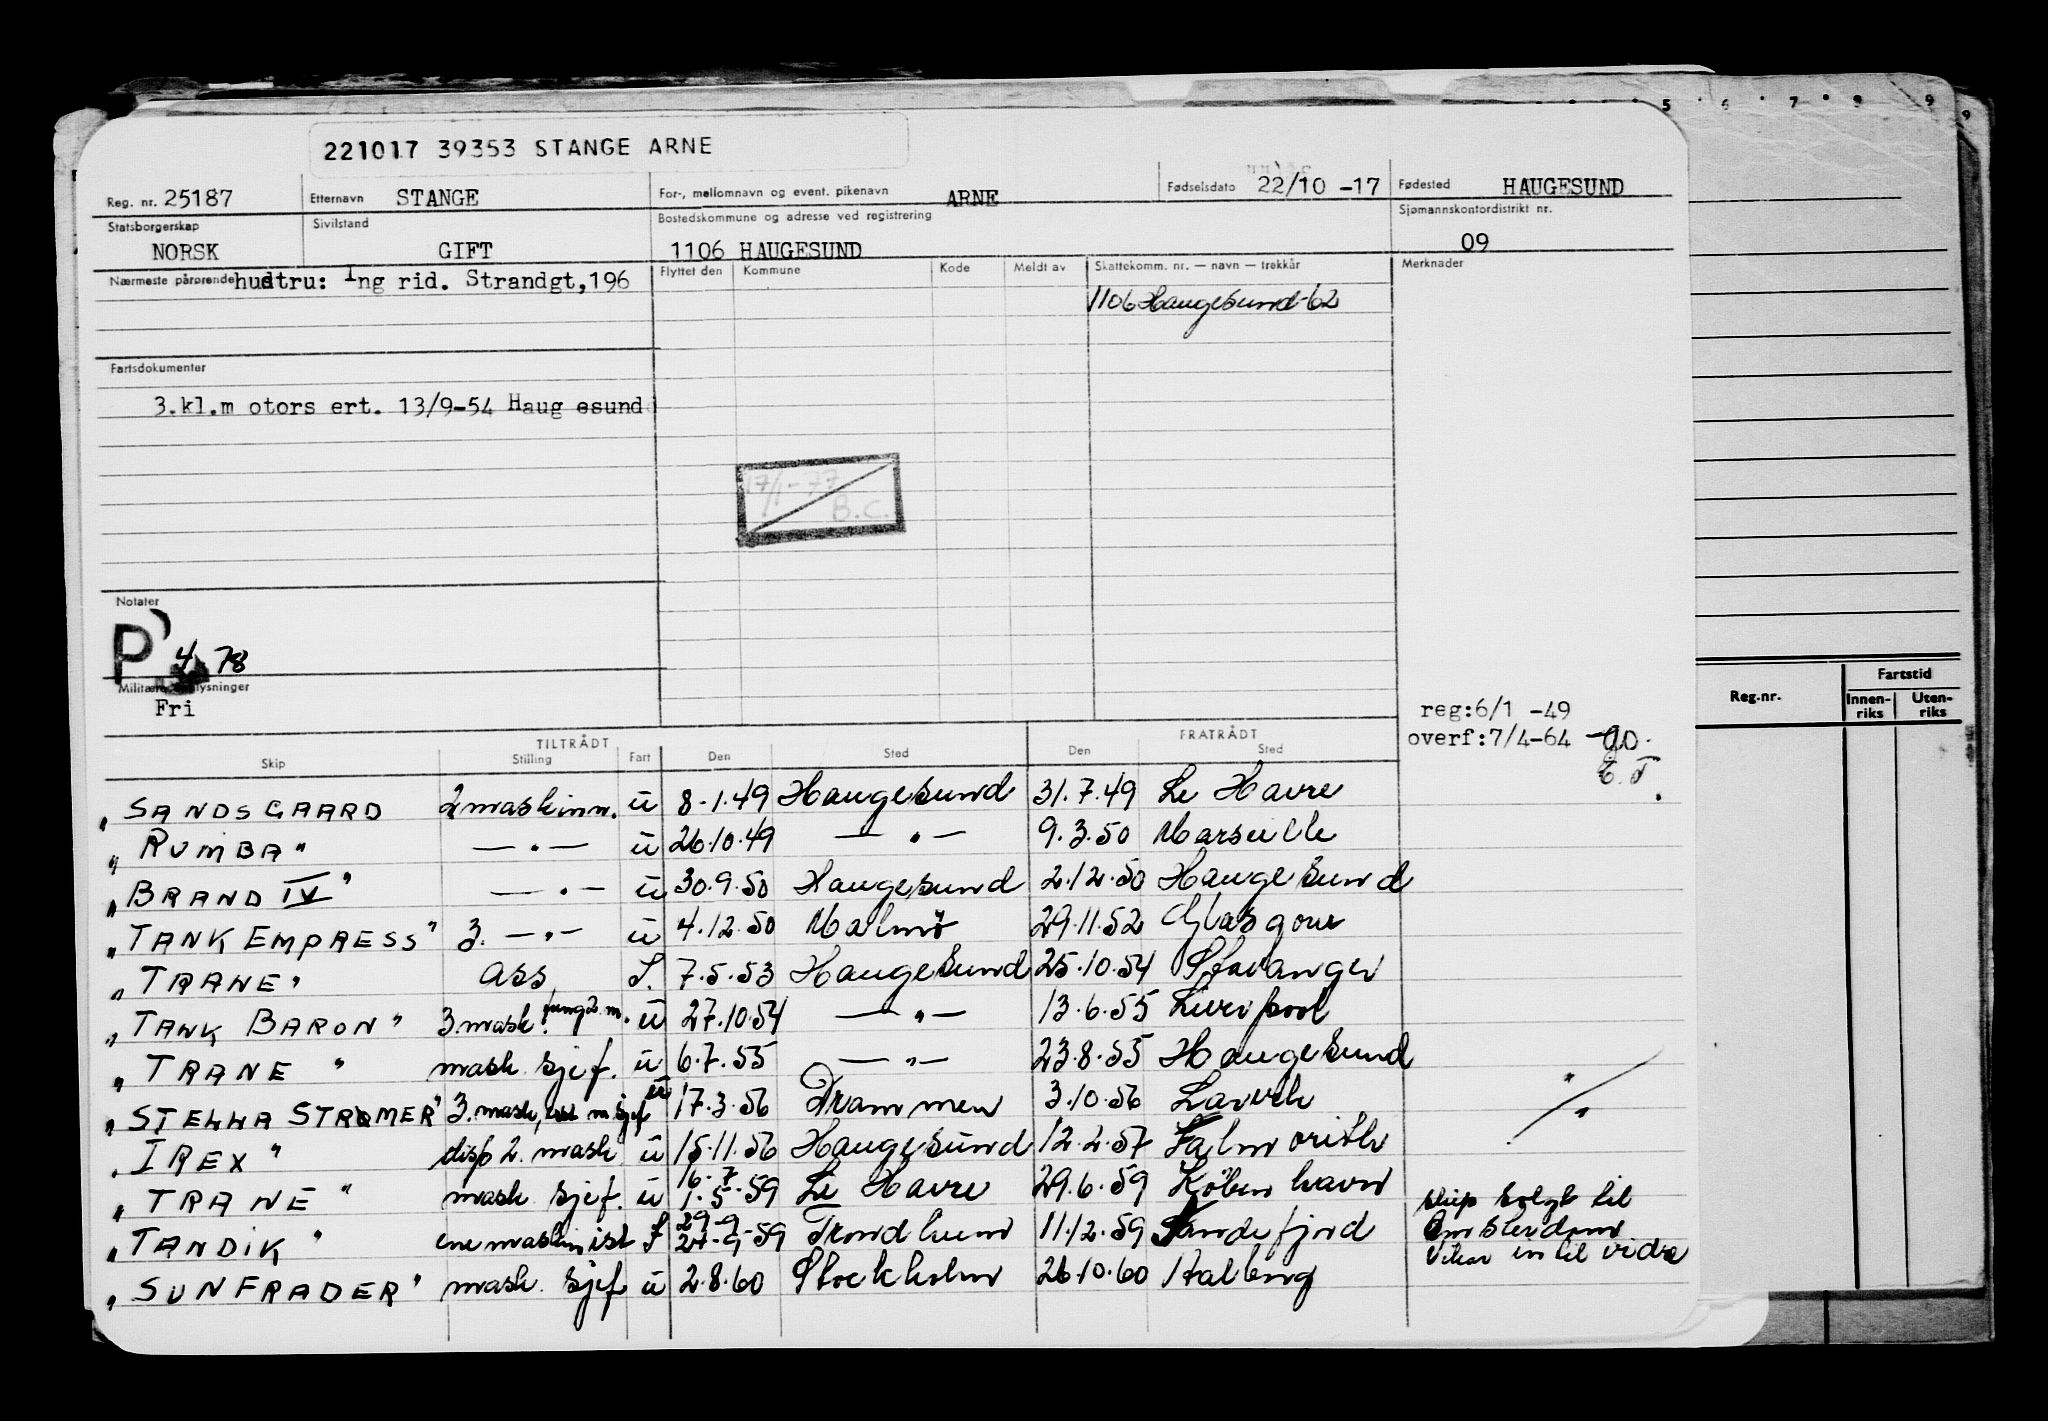 5 6 7 8 9 9
221017 39353 STANGE ARNE
Reg. nr. 25187 Etternavn STANGE For-, mellomnavn og event. pikenavn ARNE Fødselsdato 22/10 -17 Fødested HAUGESUND
Statsborgerskap NORSK Sivilstand GIFT Bostedskommune og adresse ved registrering 1106 HAUGESUND Sjømannskontordistrikt nr. 09
Nærmeste pårørende hustru: Ing rid. Strandgt,196 Flyttet den Kommune Kode Meldt av Skattekomm. nr. — navn — trekkår Merknader
1106 Haugesund-62
Fartsdokumenter
3.kl.m otors ert. 13/9-54 Haug esund
17/1-77
B.C.
Notater
P 4 78
Militære opplysninger
Fri
reg:6/1 -49
overf:7/4-64
E.T.
Reg.nr. Fartstid
Innen-riks Uten-riks
TILTRÅDT FRATRÅDT
Skip Stilling Fart Den Sted Den Sted
"SANDSGAARD 2 maskinn. u 8-1.49 Haugesund 31.7.49 Le Havre
"RUMBA" —"— u 26.10.49 —"— 9.3.50 Marseille
"BRAND IV" —"— u 30.9.50 Haugesund 2.12.50 Haugesund
"TANK EMPRESS" 3. —"— u 4.12.50 Malmø 29.11.52 Glasgow
"TRANE" ass 7.5.53 Haugesund 25.10.54 Stavanger
"TANK BARON" 3.mask. fung 2. m. u 27.10.54 —"— 13.6.55 Liverpool
"TRANE" mask. sjef. u 6.7.55 —"— 23.8.55 Haugesund
"STELLA STRØMER" 3. mask, m.sjef u 17.3.56 Drammen 3.10.56 Larvik
"IREX" disp 2. mask u 15.11.56 Haugesund 12.2.57 Falmouth
"TRANE" mask sjef. u 16-7 1.5.59 Le Havre 29.6.59 København
"TANDIK" ene maskinist 29-9 59 Trondheim 11.12.59 Sandefjord
"SUNFRADER" mask. sjef u 2.8.60 Stockholm 26.10.60 Aalborg
Skip solgt til
Amsterdam